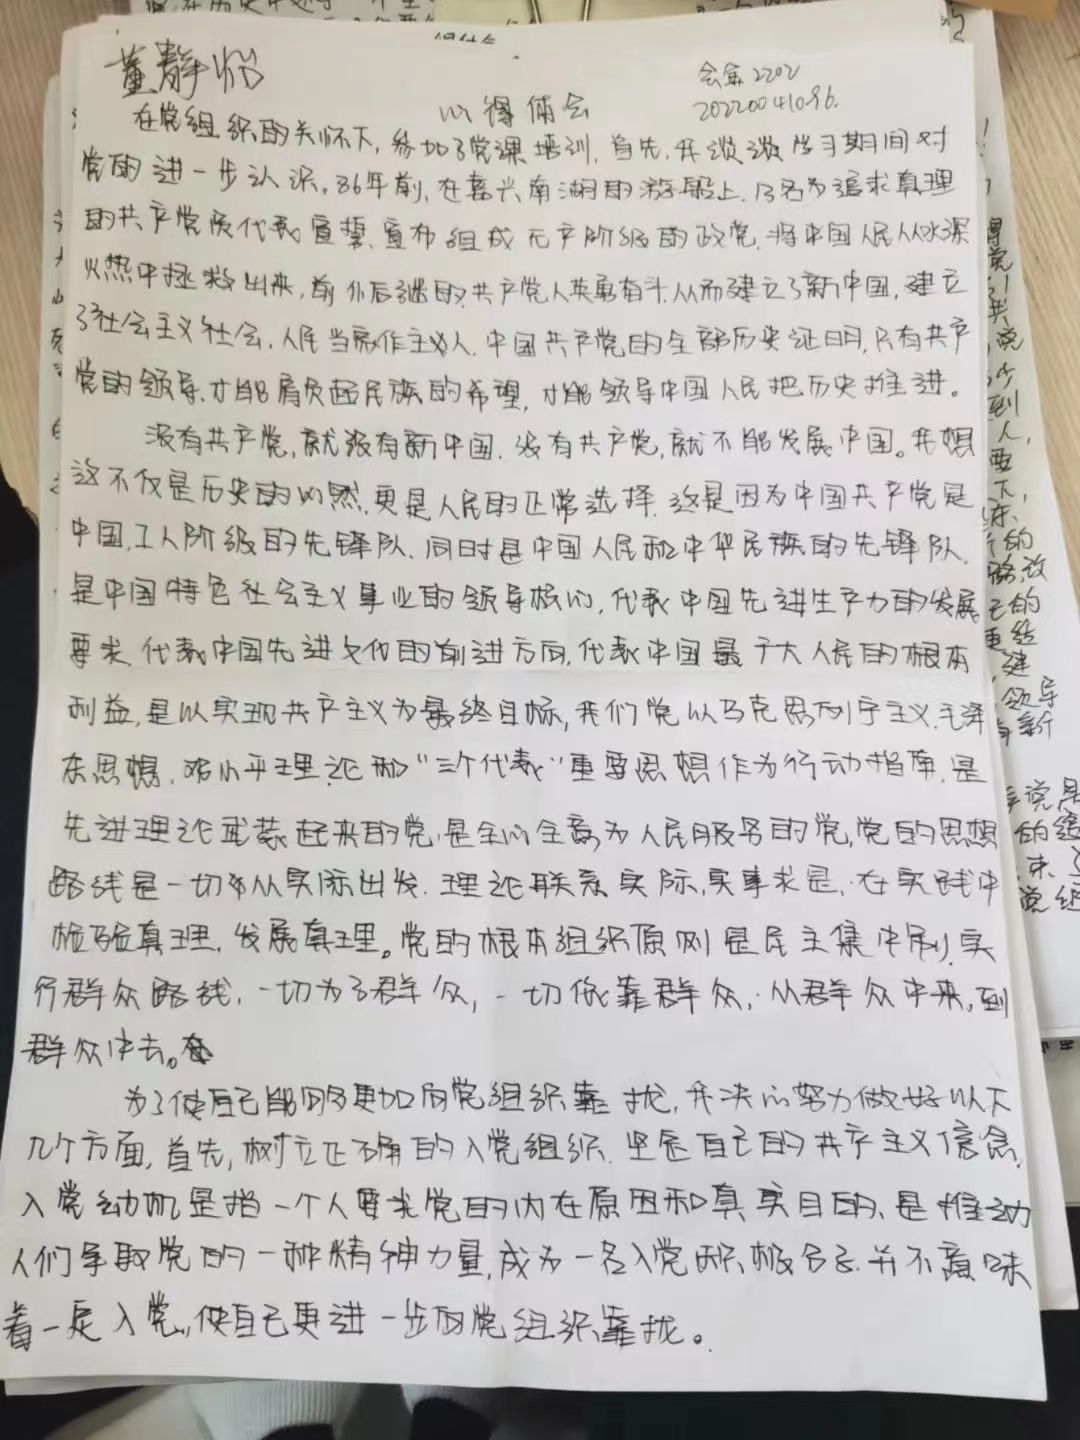 董静怡
会审2202
心得体会
2022004 1096.
在党组织的关怀下,参加了党课培训,首先,我谈谈学习期间对
党的进一步认识。86年前,在嘉兴南湖的游船上,13名为追求真理
的共产党员代表宣誓、宣布组成无产阶级的政党,将中国人民从水深
火热中拯救出来,前仆后继的共产党人英勇奋斗,从而建立了新中国,建立
了社会主义社会,人民当家作主人,中国共产党的全部历史证明,只有共产
党的领导,才能肩负起民族的希望,才能领导中国人民把历史推进。
没有共产党,就没有新中国,没有共产党,就不能发展中国。我想
这不仅是历史的必然,更是人民的正常选择,这是因为中国共产党是
中国,工人阶级的先锋队,同时是中国人民和中华民族的先锋队,
是中国特色社会主义事业的领导核心,代表中国先进生产力的发展
要求,代表中国先进文化的前进方向,代表中国最广大人民的根本
利益,是以实现共产主义为最终目标,我们党以马克思列宁主义,毛泽
东思想,邓小平理论和“三个代表”重要思想作为行动指南,是
先进理论武装起来的党,是全心全意为人民服务的党,党的思想
路线是一切从实际出发,理论联系实际,实事求是,在实践中
检验真理,发展真理。党的根本组织原则是民主集中制,实
行群众路线,一切为了群众,一切依靠群众,从群众中来,到
群众中去。
为了使自己能够更加向党组织靠拢,我决心努力做好以下
几个方面,首先,树立正确的入党组织,坚定自己的共产主义信念,
入党动机是指一个人要求党的内在原因和真实目的,是推动
人们争取党的一种精神力量,成为一名入党积极分子,并不意味
着一定入党,使自己更进一步向党组织靠拢。